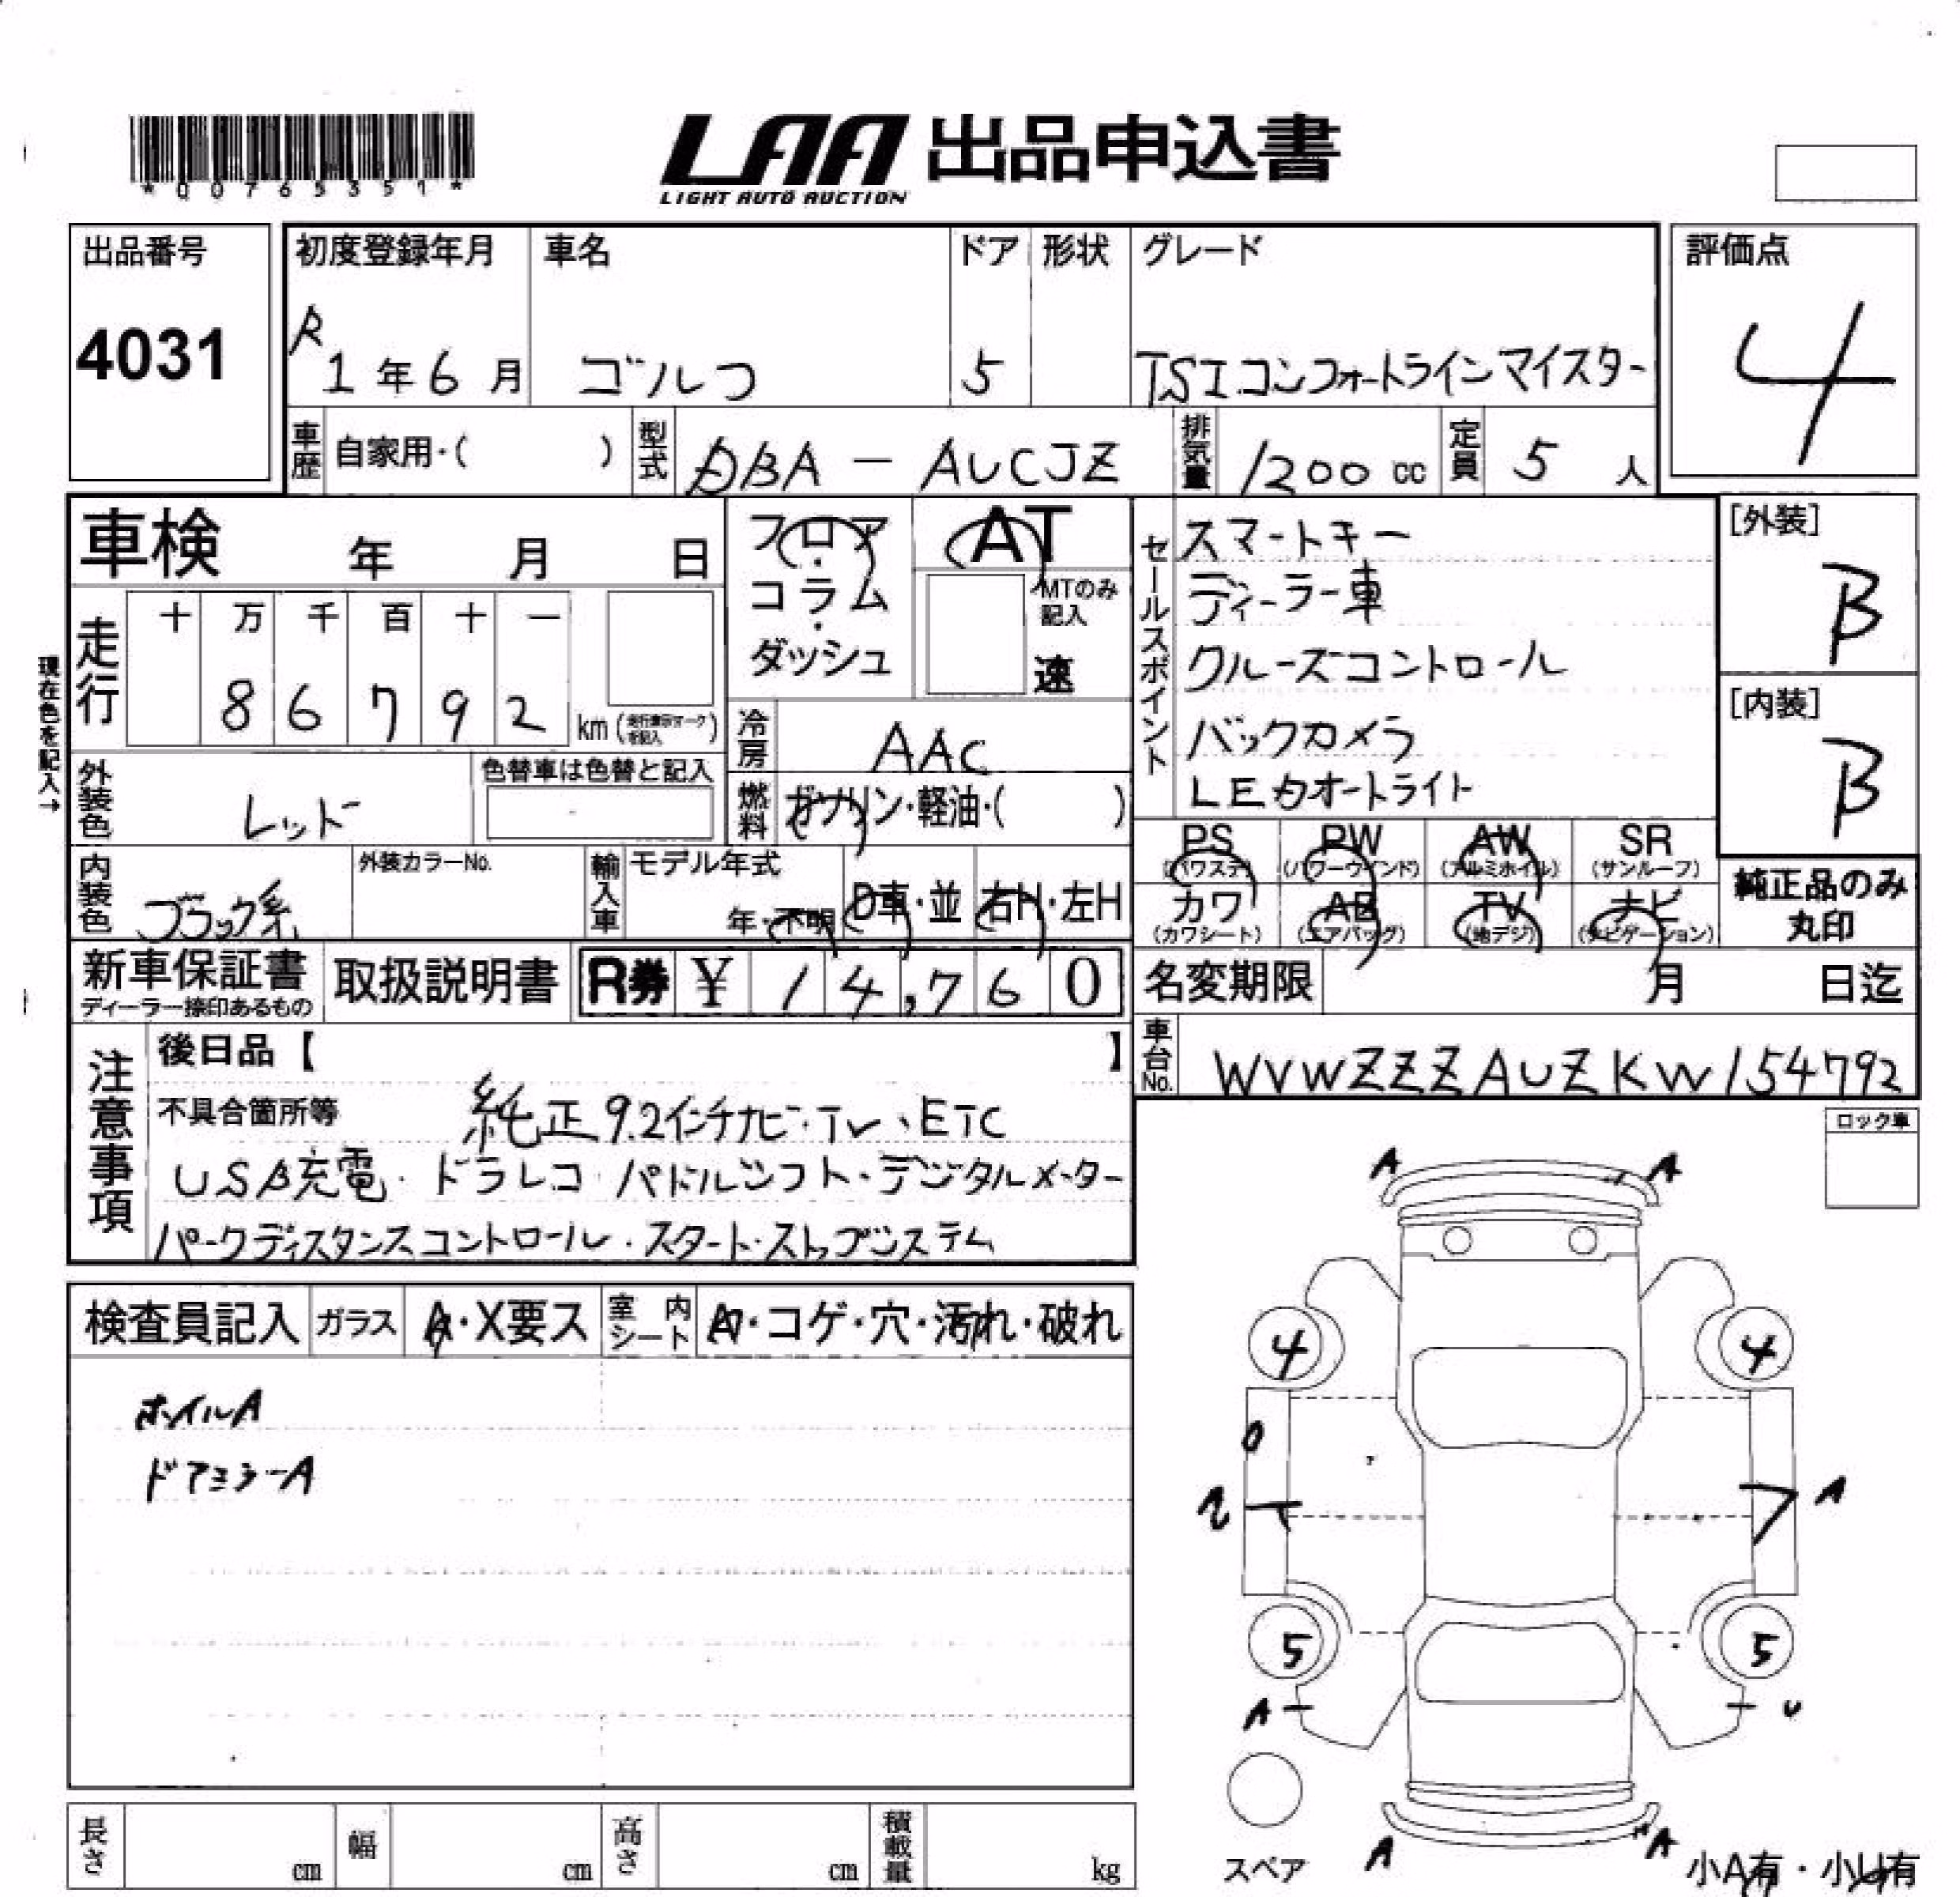 *00765351*
LAA 出品申込書
LIGHT AUTO AUCTION
出品番号 初度登録年月 車名 ドア 形状 グレード 評価点
4031 R1年6月 ゴルフ 5 TSIコンフォートラインマイスター 4
車歴 自家用・( ) 型式 DBA-AUCJZ 排気量 1200cc 定員 5人
車検 年 月 日 フロア・コラム・ダッシュ AT
MTのみ記入 速
セールスポイント
スマートキー
ディーラー車
クルーズコントロール
バックカメラ
LEDオートライト
[外装] B
[内装] B
現在色を記入→
走行 十 万 千 百 十 一
86792 km(走行表示マークを記入)
冷房 AAC
外装色 レッド 色替車は色替と記入
燃料 ガソリン・軽油・( )
PS (パワステ) PW (パワーウインド) AW (アルミホイル) SR (サンルーフ)
内装色 ブラック系 外装カラーNo. 輸入車 モデル年式 年・不明 D車・並 右H・左H
カワ (カワシート) AB (エアバッグ) TV (地デジ) ナビ (ナビゲーション)
純正品のみ
丸印
新車保証書 ディーラー捺印あるもの 取扱説明書 R券 ¥14,760 名変期限 月 日迄
車台No. WVWZZZAUZKW154792
注意事項
後日品【 】
不具合箇所等 純正9.2インチナビ・TV、ETC
USB充電・ドラレコ・パドルシフト・デジタルメーター
パークディスタンスコントロール・スタート・ストップシステム
ロック車
検査員記入 ガラス A・X要ス 室内シート ・コゲ・穴・汚れ・破れ
ホイルA
ドアミラーA
A A
4 4
A
5 5
A
A A
スペア
小A有・小U有
長さ cm 幅 cm 高さ cm 積載量 kg